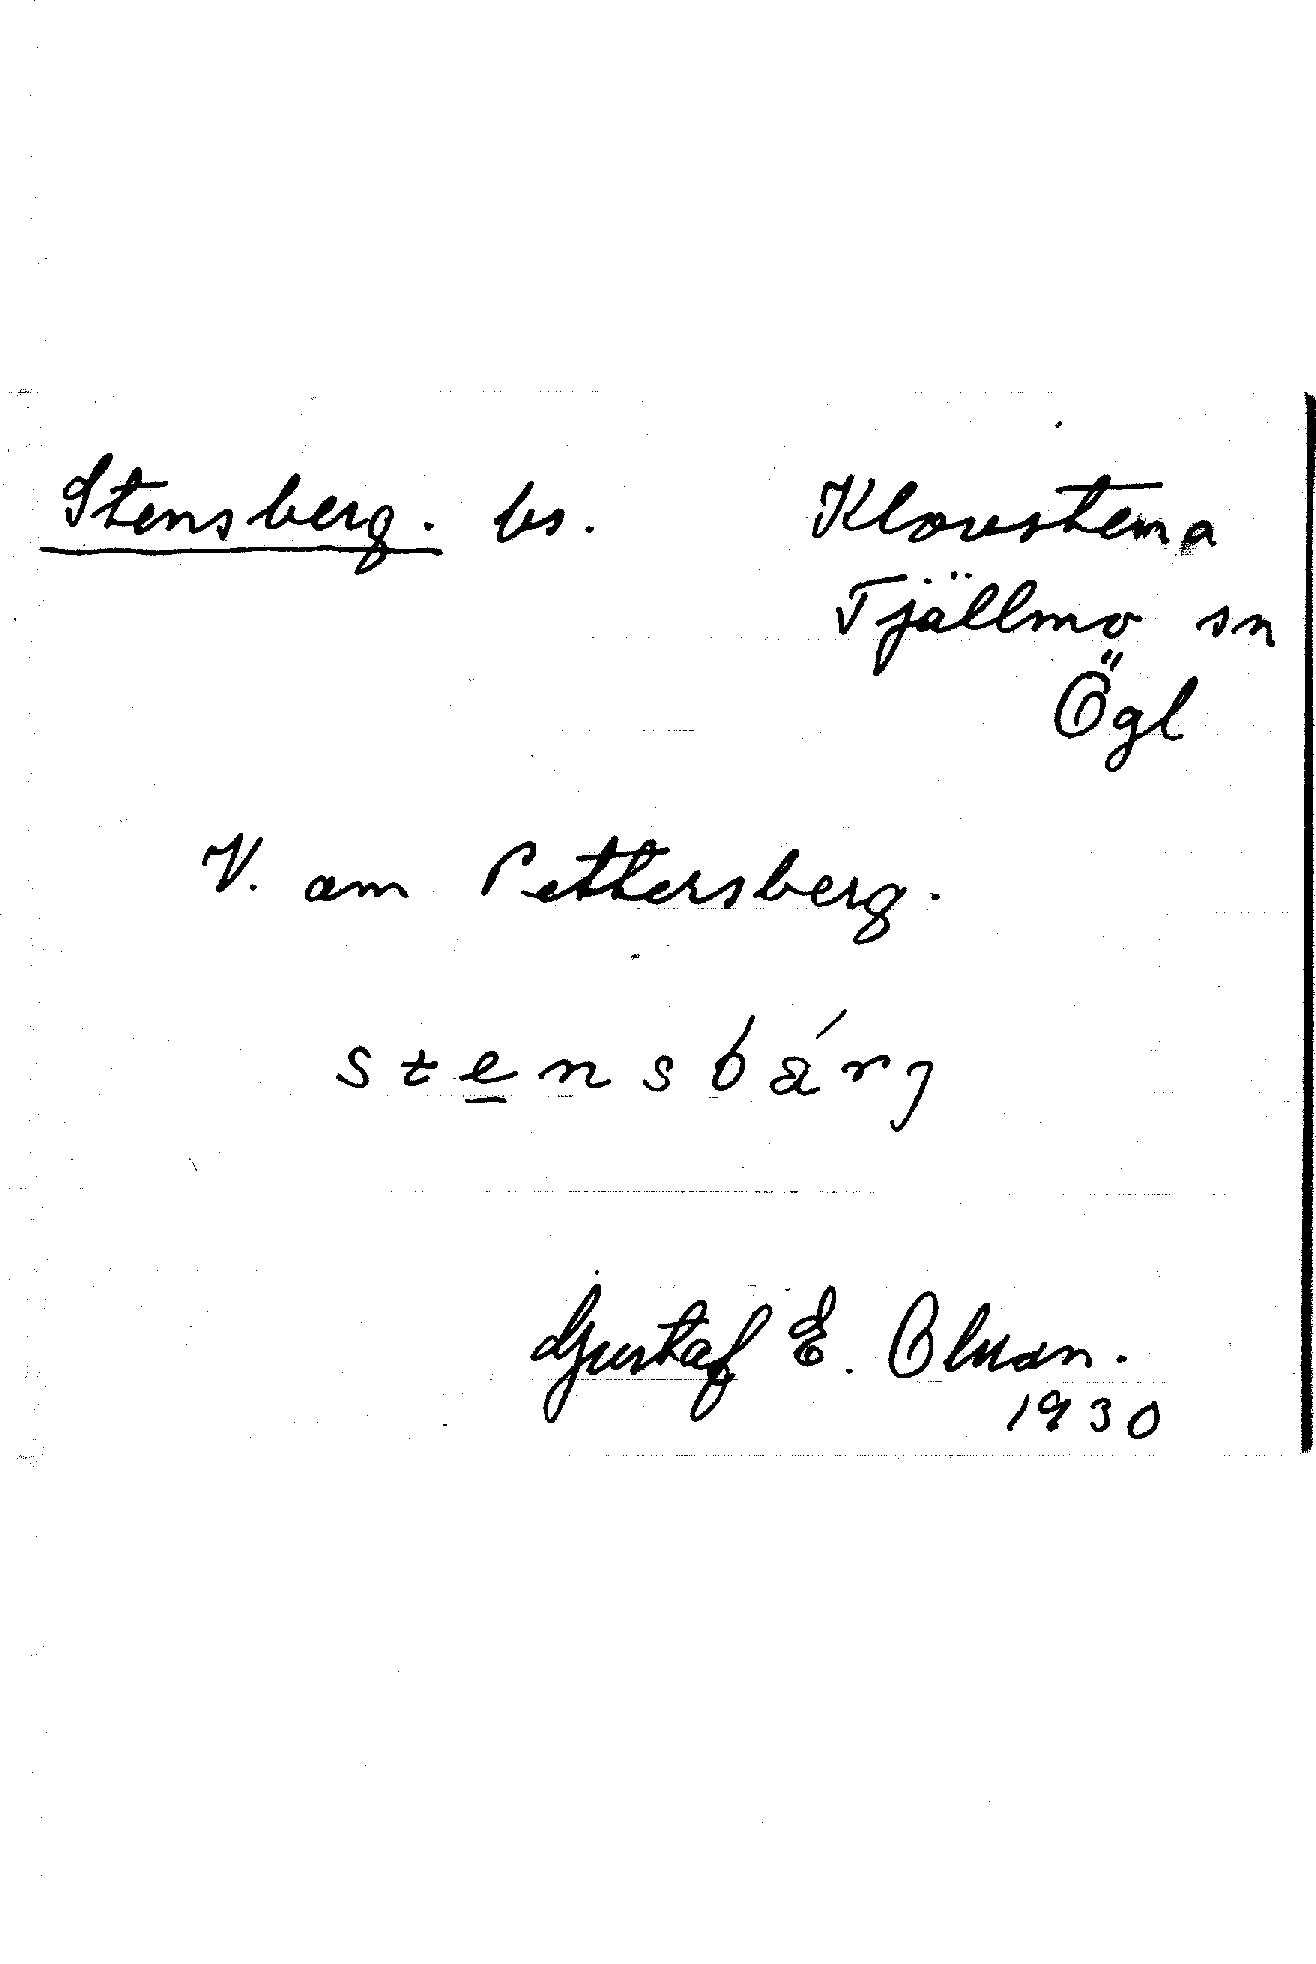 Stensberg. bs. Klovstena
Tjällmo sn
Ögl
V. om Pettersberg.
stensbärj
Gustaf E. Olsson.
1930